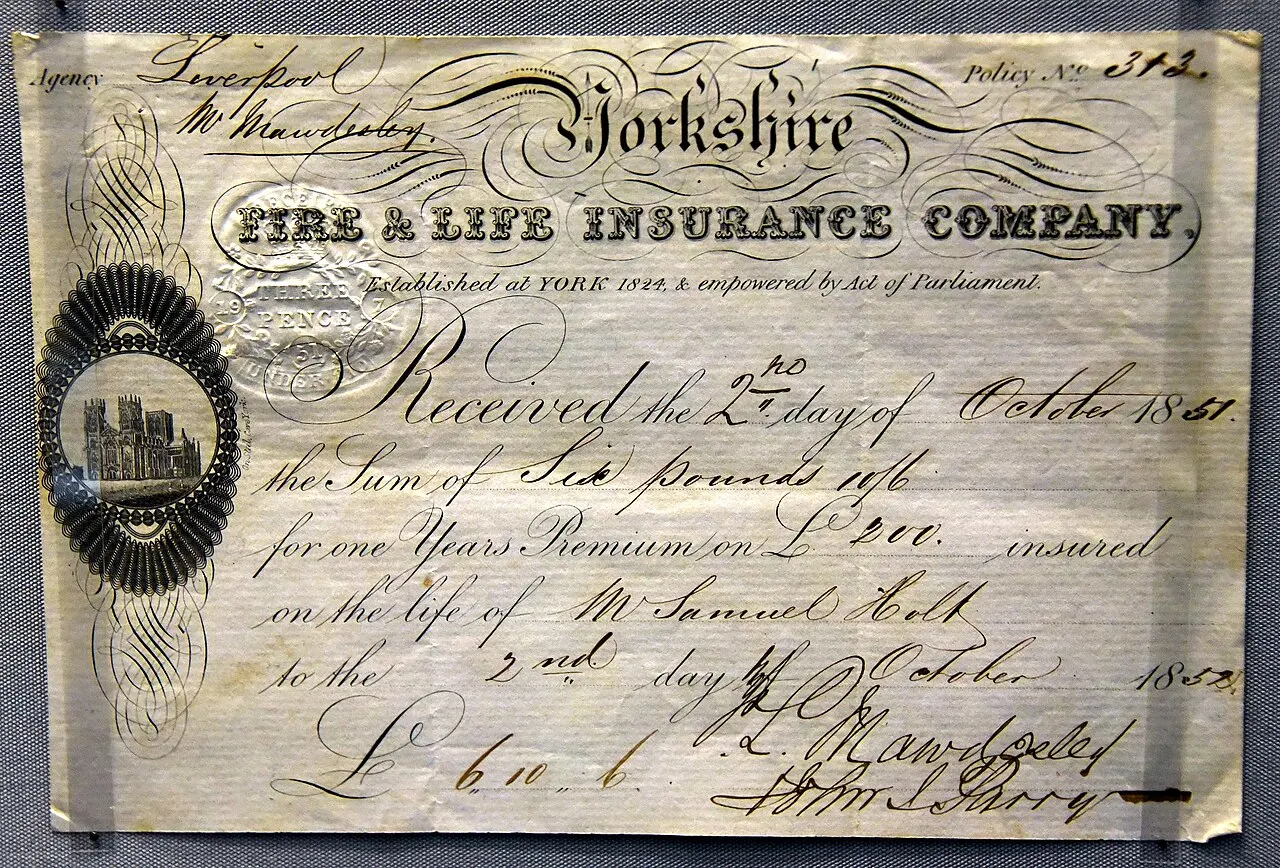 Agency Liverpool
Mr Mawdesley.
Policy No. 313.
Yorkshire
FIRE & LIFE INSURANCE COMPANY.
Established at YORK 1824, & empowered by Act of Parliament.
THREE
PENCE
Received the 2no day of October 1851.
the Sum of Six pounds 10/6
for one Years Premium on £ 200. insured
on the life of Mr Samuel Holt
to the 2nd. day of October 1852.
£ 6, 10, 6
L. Mawdesley
John S Parry